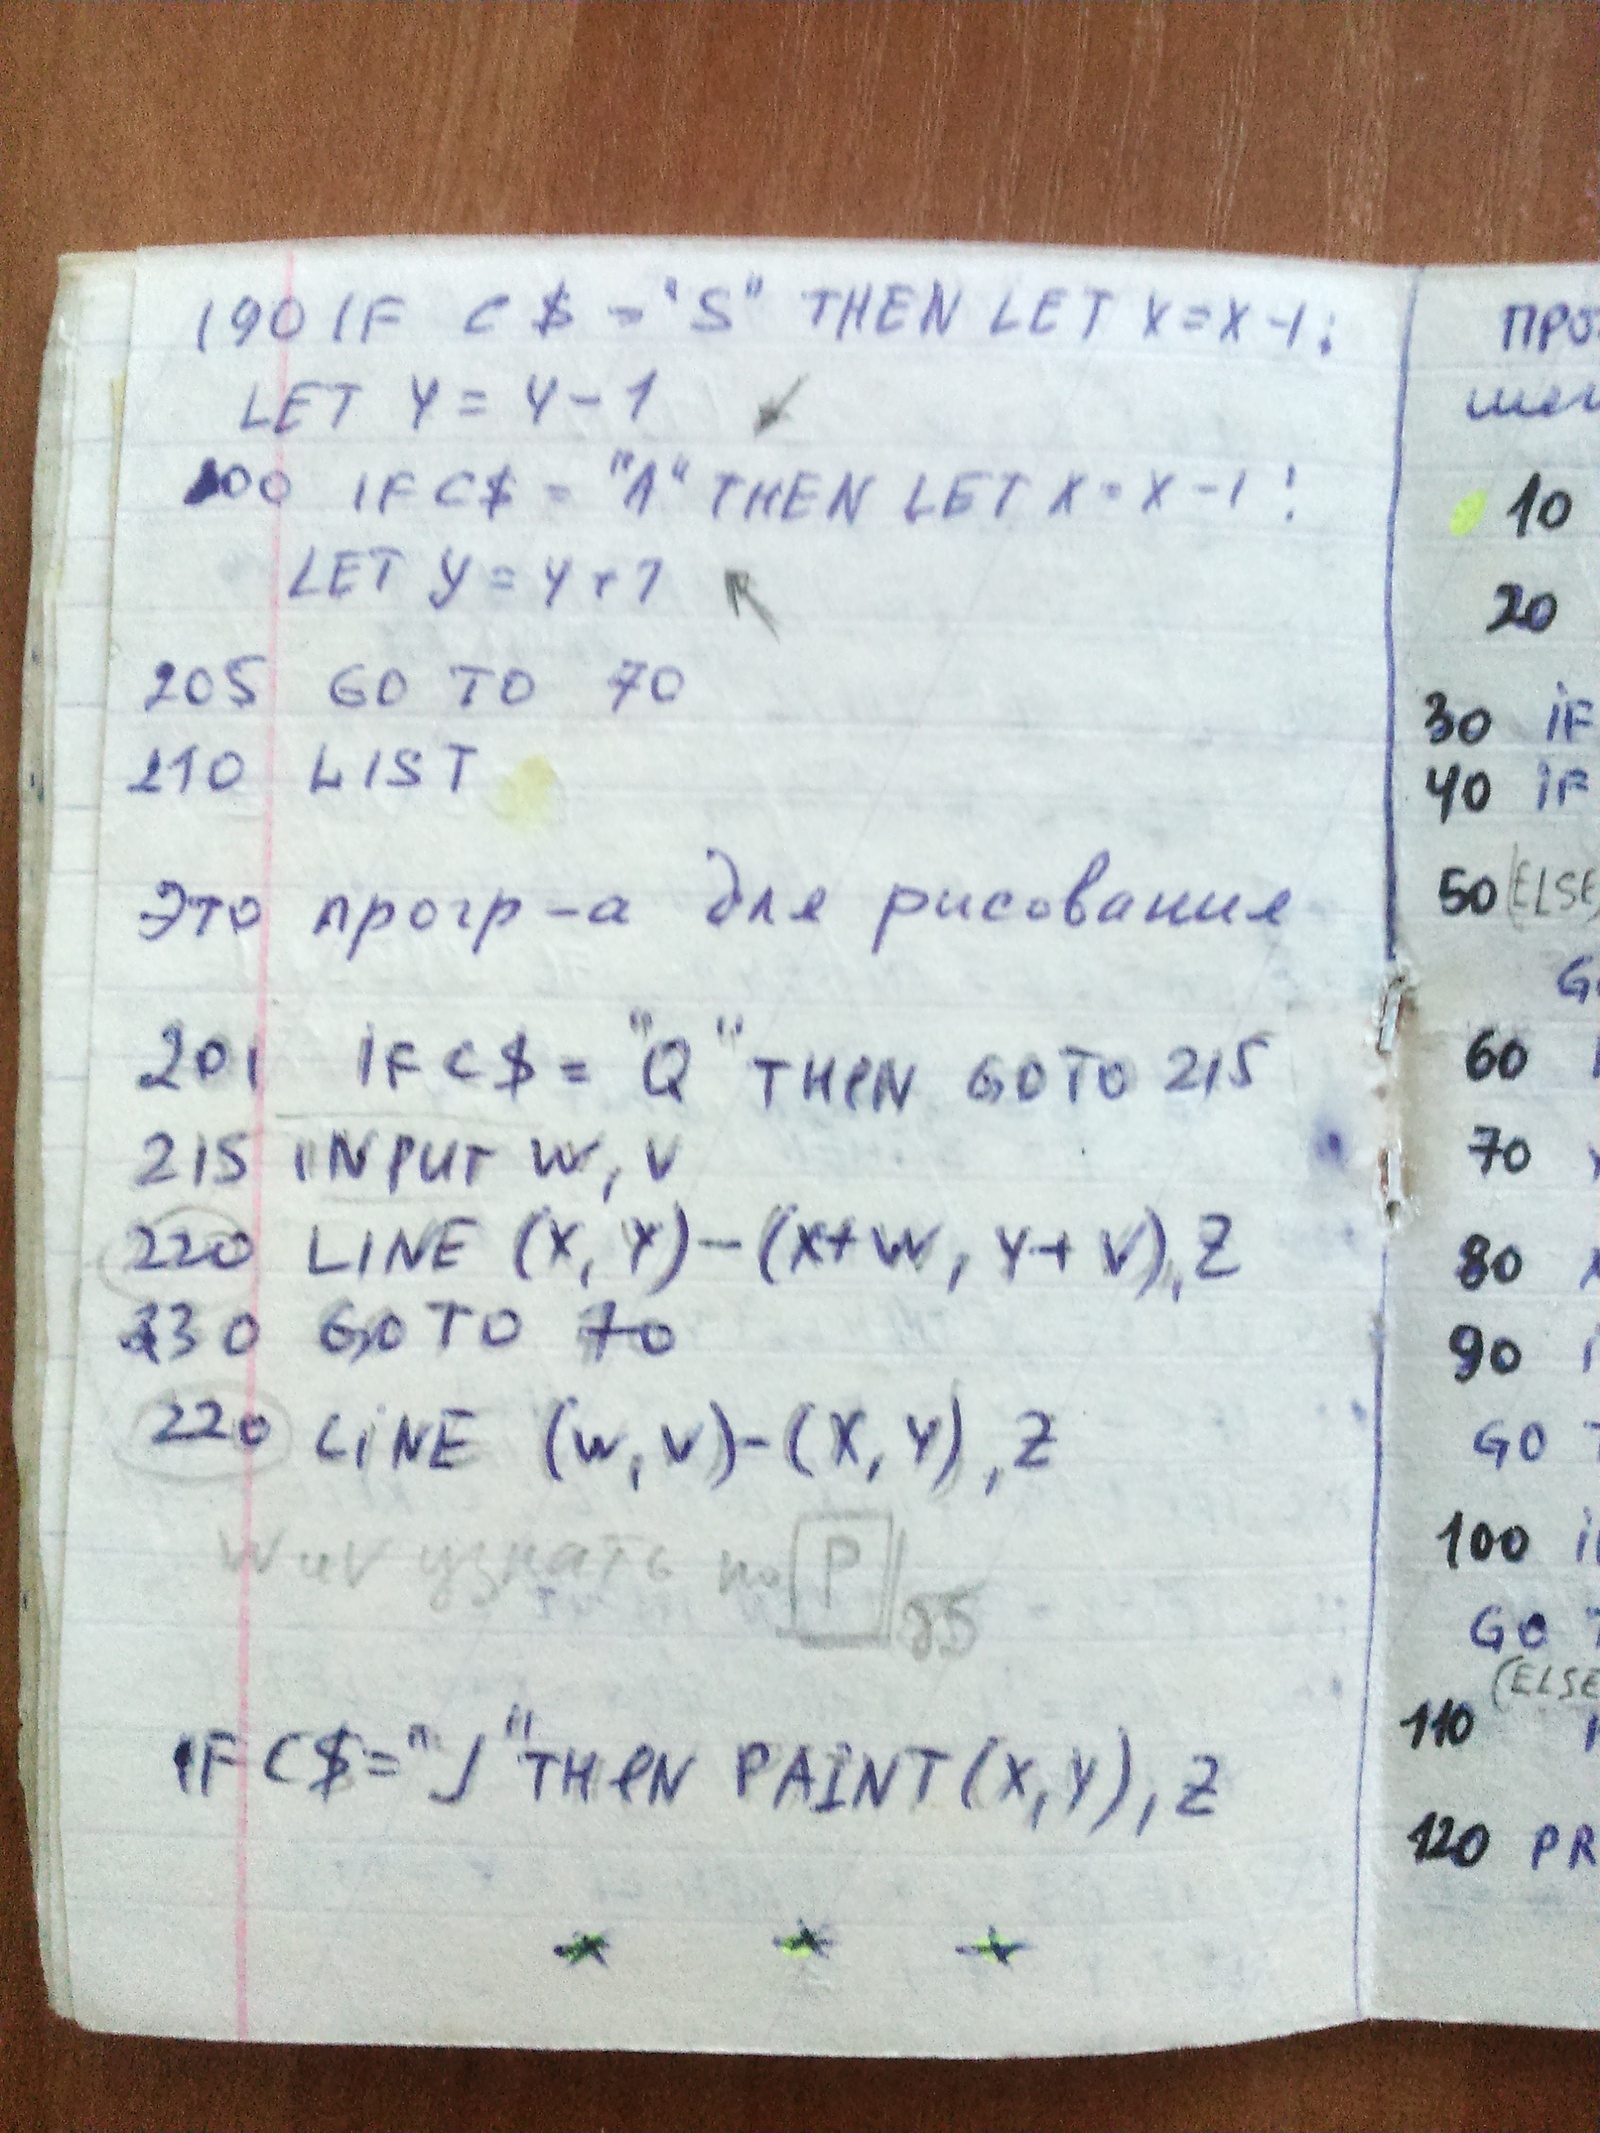 190 IF C$="S" THEN LET X=X-1:
LET Y=Y-1
200 IF C$="A" THEN LET X=X-1:
LET Y=Y+1
205 GO TO 70
210 LIST
Это прогр-а для рисования
201 IF C$="Q" THEN GO TO 215
215 INPUT W,V
220 LINE (X,Y)-(X+W,Y+V),Z
230 GO TO 70
220 LINE (W,V)-(X,Y),Z
W и V узнать по P 85
IF C$="J" THEN PAINT(X,Y),Z
* * *
10
20
30 IF
40 IF
50 (ELSE)
60
70
80
90
GO
100
GO
(ELSE
110
120 PR